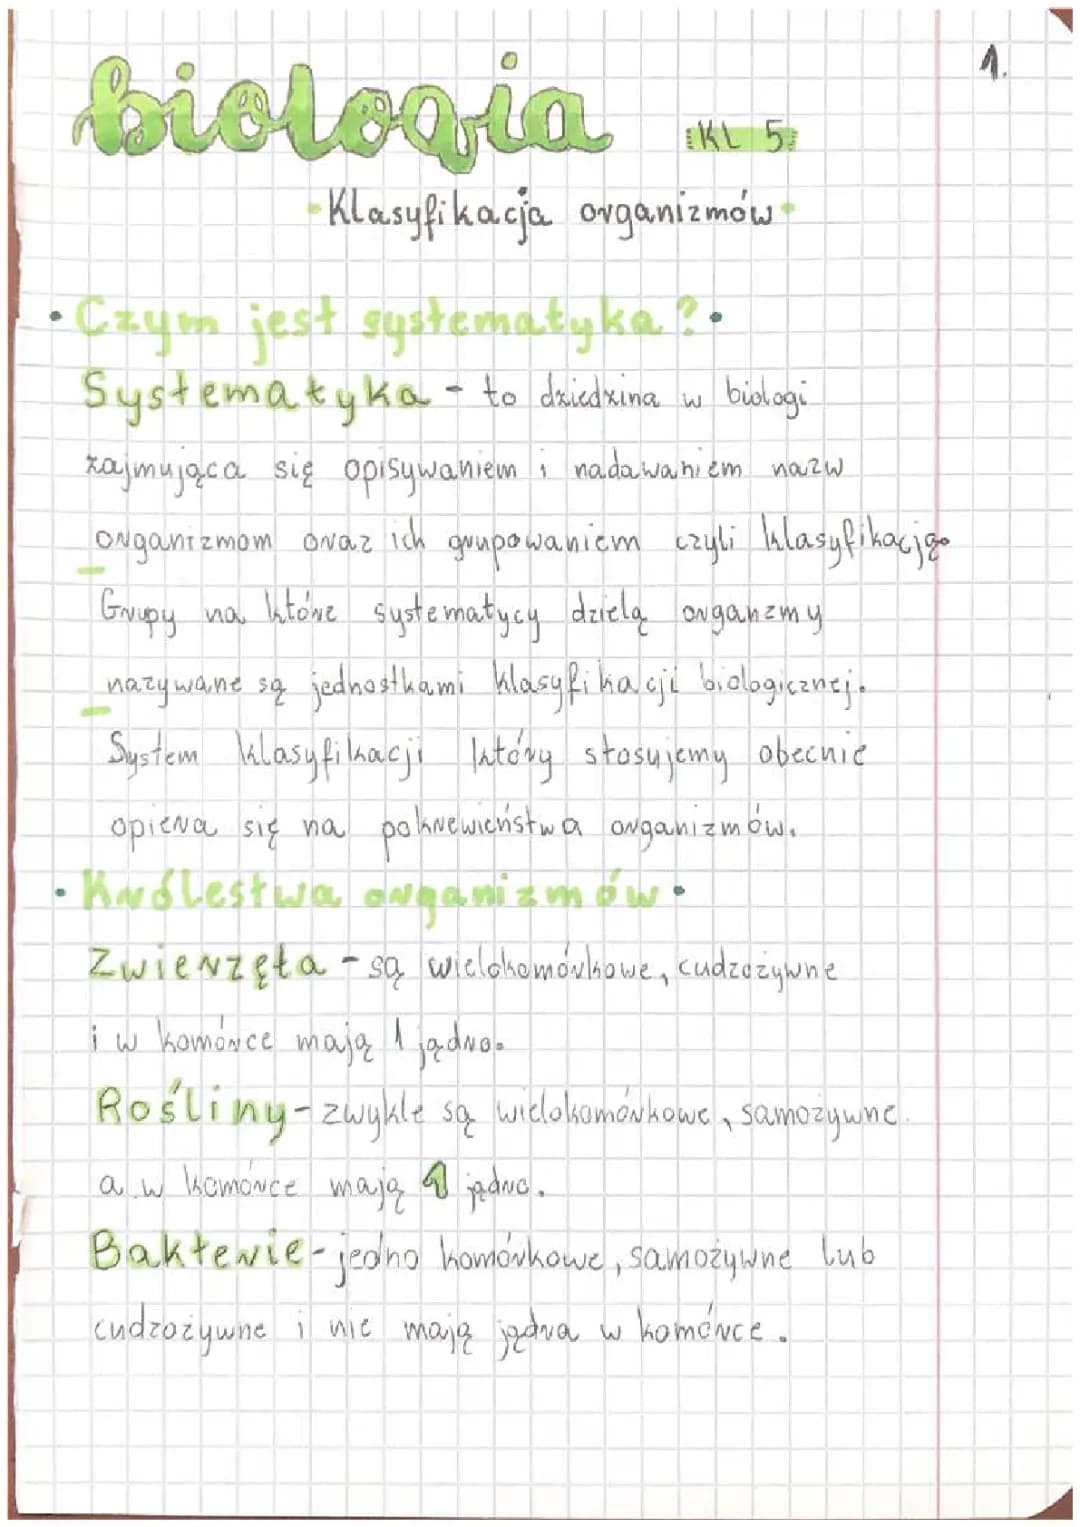 1.
biologia KL 5
Klasyfikacja organizmów
• Czym jest systematyka? •
Systematyka - to dziedzina w biologi
zajmująca się opisywaniem i nadawaniem nazw
organizmom oraz ich grupowaniem czyli klasyfikacją.
Grupy na które systematycy dzielą organzmy
nazywane są jednostkami klasyfikacji biologicznej.
System klasyfikacji który stosujemy obecnie
opiera się na pokrewieństwa organizmów.
• Królestwa organizmów •
Zwierzęta - są wielokomórkowe, cudzożywne
i w komórce mają 1 jądro.
Rośliny - zwykle są wielokomórkowe, samożywne.
a w komórce mają 1 jądro.
Bakterie - jedno komórkowe, samożywne lub
cudzożywne i nie mają jądra w komórce.